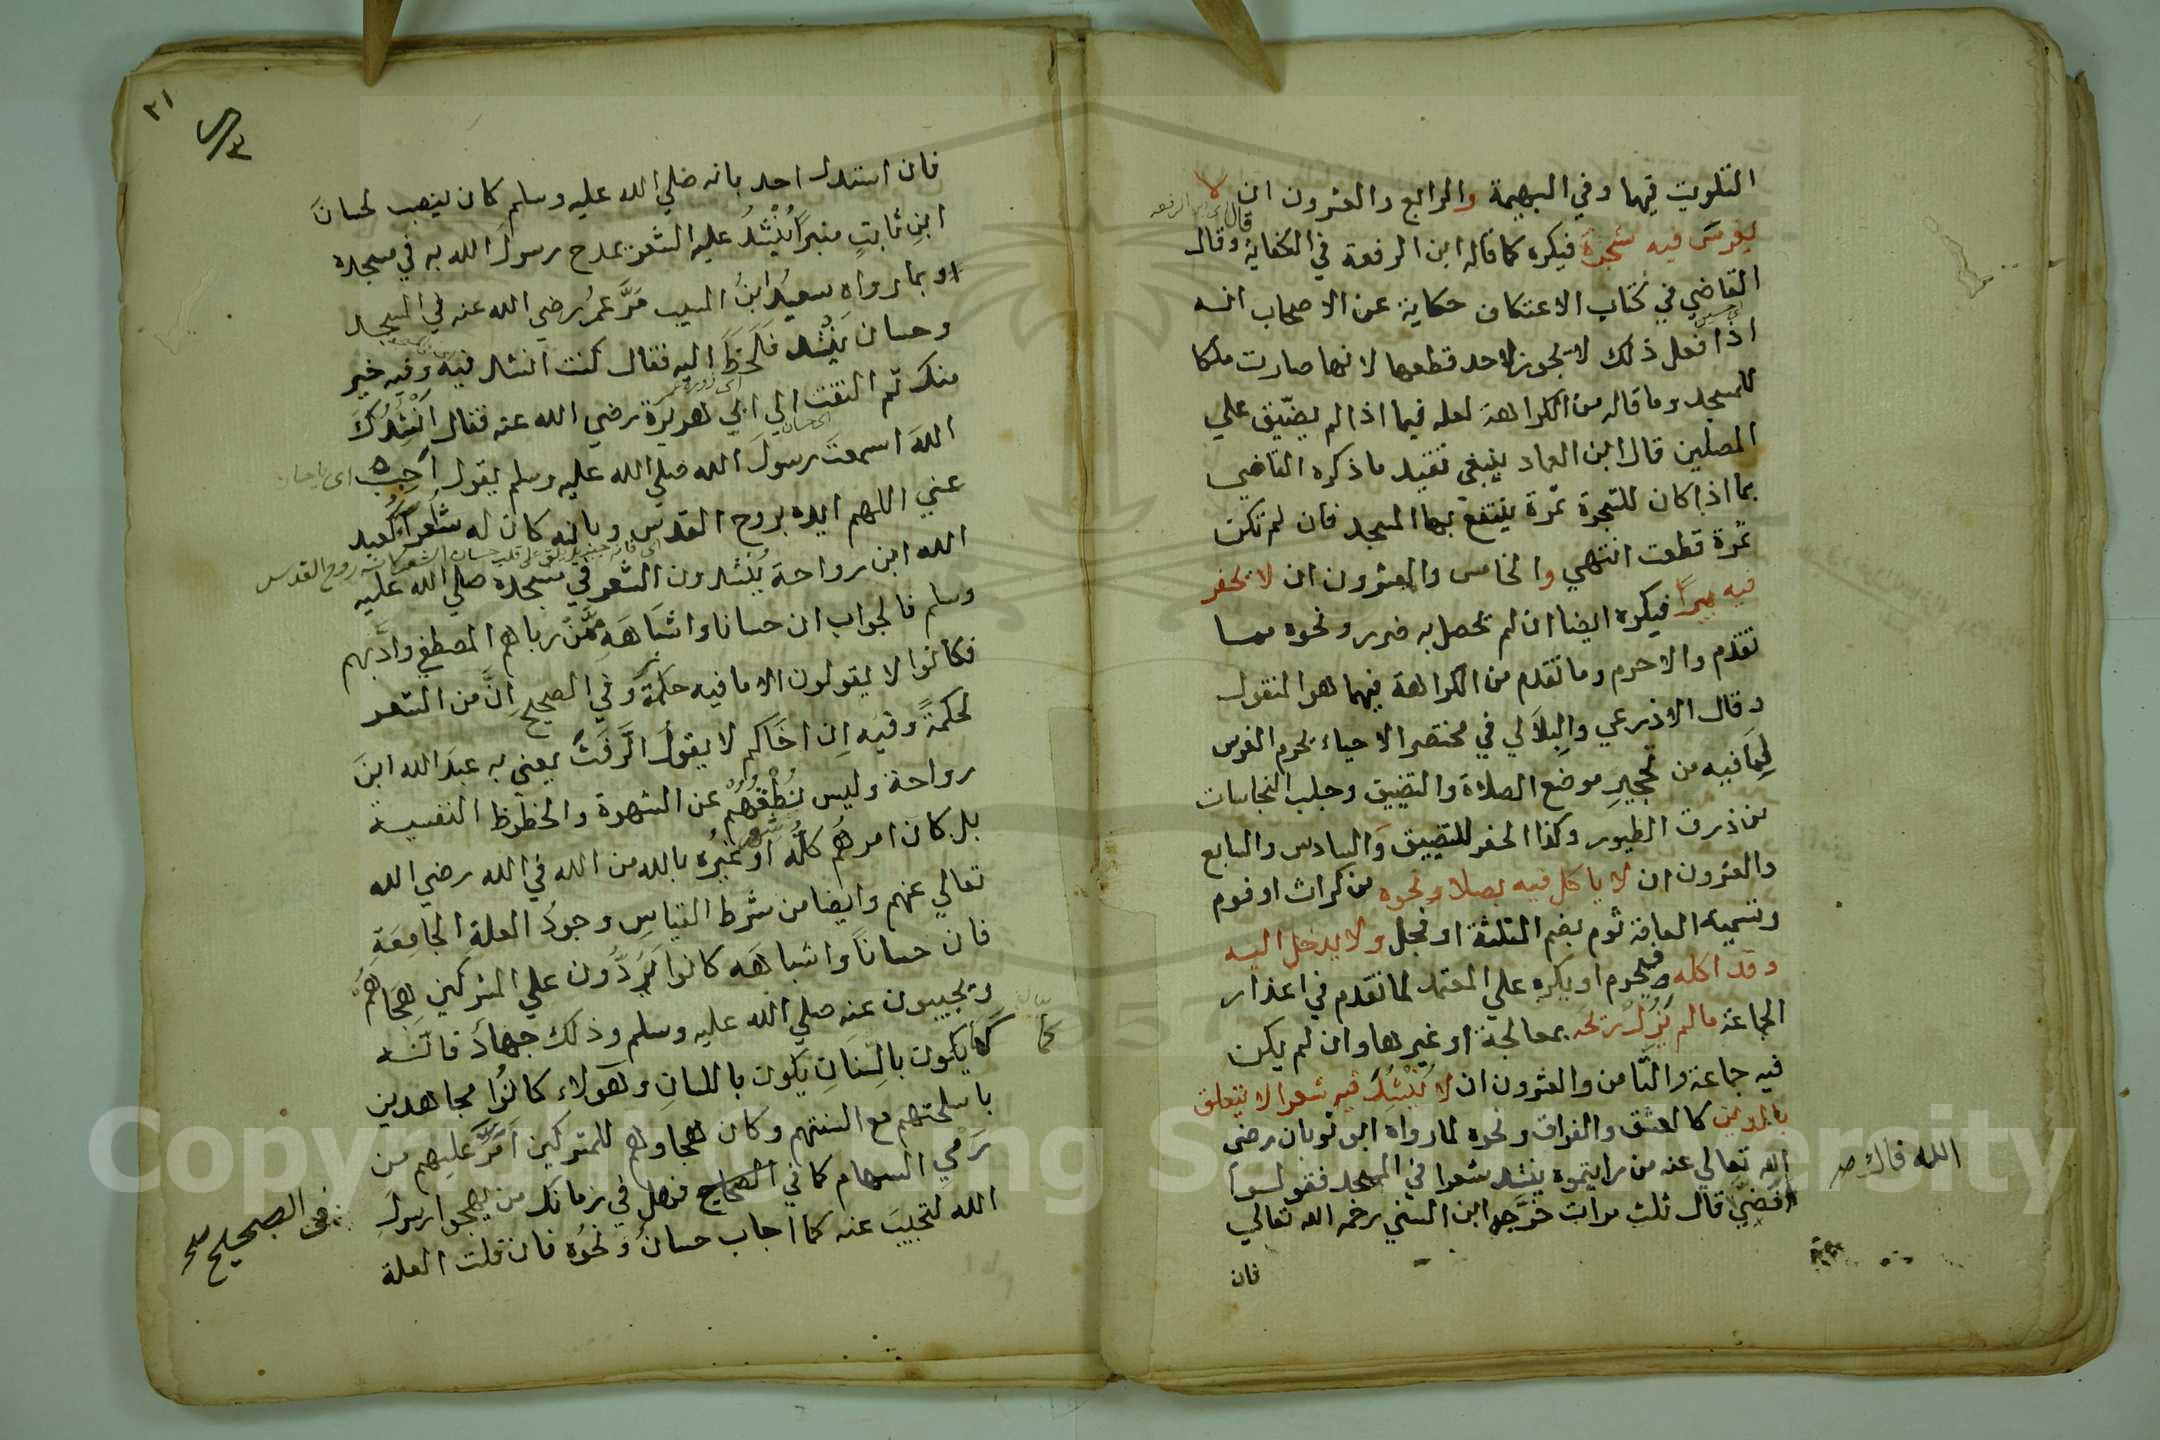 التلويث فيها وفي البهيمة والرابع والعشرون ان لا
يغرس فيه شجرة فيكره كما قاله ابن الرفعة في الكفاية وقال
قال ابن الرفعه
القاضي في كتاب الاعتكاف حكاية عن الاصحاب انه
اذا فعل ذلك لا يجوز لاحد قطعها لانها صارت ملكا
للمسجد وما قاله من الكراهة لعله فيما اذا لم يضيّق علي
المصلين قال ابن العماد ينبغي تقييد ما ذكره القاضي
بما اذا كان للشجرة ثمرة ينتفع بها المسجد فان لم تكن
ثمرة قطعت انتهي والخامس والعشرون ان لا يحفر
فيه بيرًا فيكره ايضا ان لم تحصل به ضرر ونحوه مما
تقدم والا حرم وما تقدم من الكراهة فيهما هو المنقول
وقال الاذرعي والبِلَالي في مختصر الاحياء يحرم الغرس
لِمَا فيه من تحجيرِ موضع الصلاة والتضييق وجلب النجاسات
من ذرق الطيور وكذا الحفر للتضييق والسادس والسابع
والعشرون ان لا ياكل فيه بصلا ونحوه من كراث او فوم
وتسميه العامة ثوم بضم المثلثة او فجل ولا يدخل اليه
وقد اكله فيحرم او يكره علي المعتمد لما تقدم في اعذار
الجماعة ما لم يَزُلْ ريحه بمعالجة او غيرها وان لم يكن
فيه جماعة والثامن والعشرون ان لا يُنْشِدَ فيه شعرا لا يتعلق
بالدين كالعشق والفراق ونحوه لما رواه ابن ثوبان رضي
الله تعالي عنه من رايتموه ينشد شعرا في المسجد فقولوا
الله فاك صـ
فضّ قال ثلث مرات خرَّجه ابن السني رحمه الله تعالي
فان
٢١
فان استدل احد بانه صلي الله عليه وسلم كان ينصب لحسانَ
ابنِ ثابتٍ منبرًا يُنْشِدُ عليه الشعر يمدح رسولَ الله به في مسجده
او بما رواه سعيدُ ابنُ المسيب مَرَّ عمرُ رضي الله عنه في المسجد
وحسان يَنْشِد فَلَحَظَ اليه فقال كنت انشد فيه وفيه خير
منك ثم التفت الي ابي هريرة رضي الله عنه فقال اَنْشُدُكَ
اللهَ اسمعتَ رسولَ الله صلي الله عليه وسلم يقول اَجِبْ
عني اللهم ايده بروح القدس وبانه كان له شعراءُ كعبد
الله ابن رواحة يُنْشدون الشعر في مسجده صلي الله عليه
وسلم فالجواب ان حسانا واشباهَه مِمَّن رباهم المصطفي وادّبهم
فكانوا لا يقولون الا ما فيه حكمةٌ وفي الصحيح اِنَّ من الشعر
لحكمةً وفيه اِن اخاكم لا يقولُ الرَّفَثَ يعني به عبدَ الله ابنَ
رواحة وليس نُطْقُهُمْ عن الشهوة والحظوظ النفسية
بل كان امرهُم كلُّه او غَيْرُه بالله من الله في الله رضي الله
تعالي عنهم وايضا من شرط القياسِ وجودُ العلةِ الجامِعَةِ
فان حسانًا واشباهَه كانوا يَرُدُّون علي المشركين هِجَاهُمْ
ويجيبون عنه صلي الله عليه وسلم وذلك جهادٌ فانّه
كَمَا يكون بالسِّنَانِ يكون باللسانِ وهؤلاء كانُوا مجاهدين
كما
باسلحتهم مع السنتهم وكان هجاوهم للمشركين اَمَرَّ عليهم من
رَمْيِ السهام كما في الصحاح فهل في زمانك من يهجوا رسولَ
في الصحيح
الله لتجيبَ عنه كما اجاب حسانُ ونحوُه فان قلت العلة